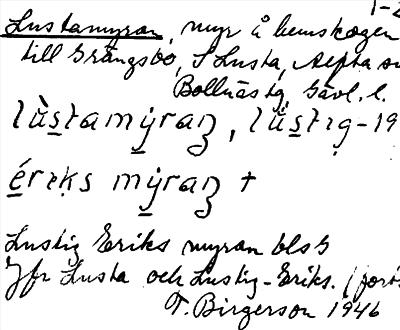 1-2
Lustamyran, myr å hemskogen
till Grängsbo, S Lusta, Alfta
Bollnäs tg, Gävl. l.
lùstamyraɲ, lùstɩg-19
éreks myraɲ +
Lustig Eriks myran bls 5
Jfr Lusta och Lustig-Eriks.
T. Birgerson 1946